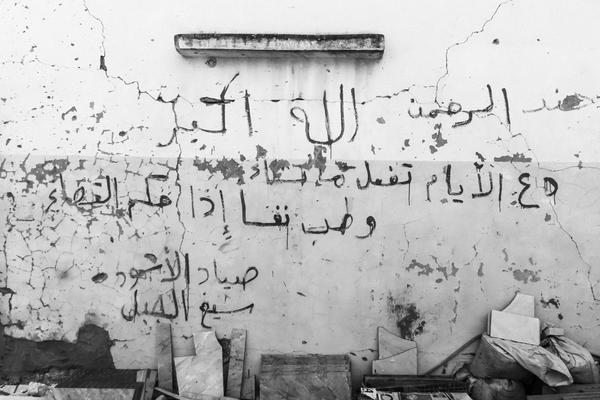 الرحمن الله أكبر
دع الأيام تفعل ما تشاء
وطب نفسا إذا حكم القضاء
صياد الأسود
سبع الليل